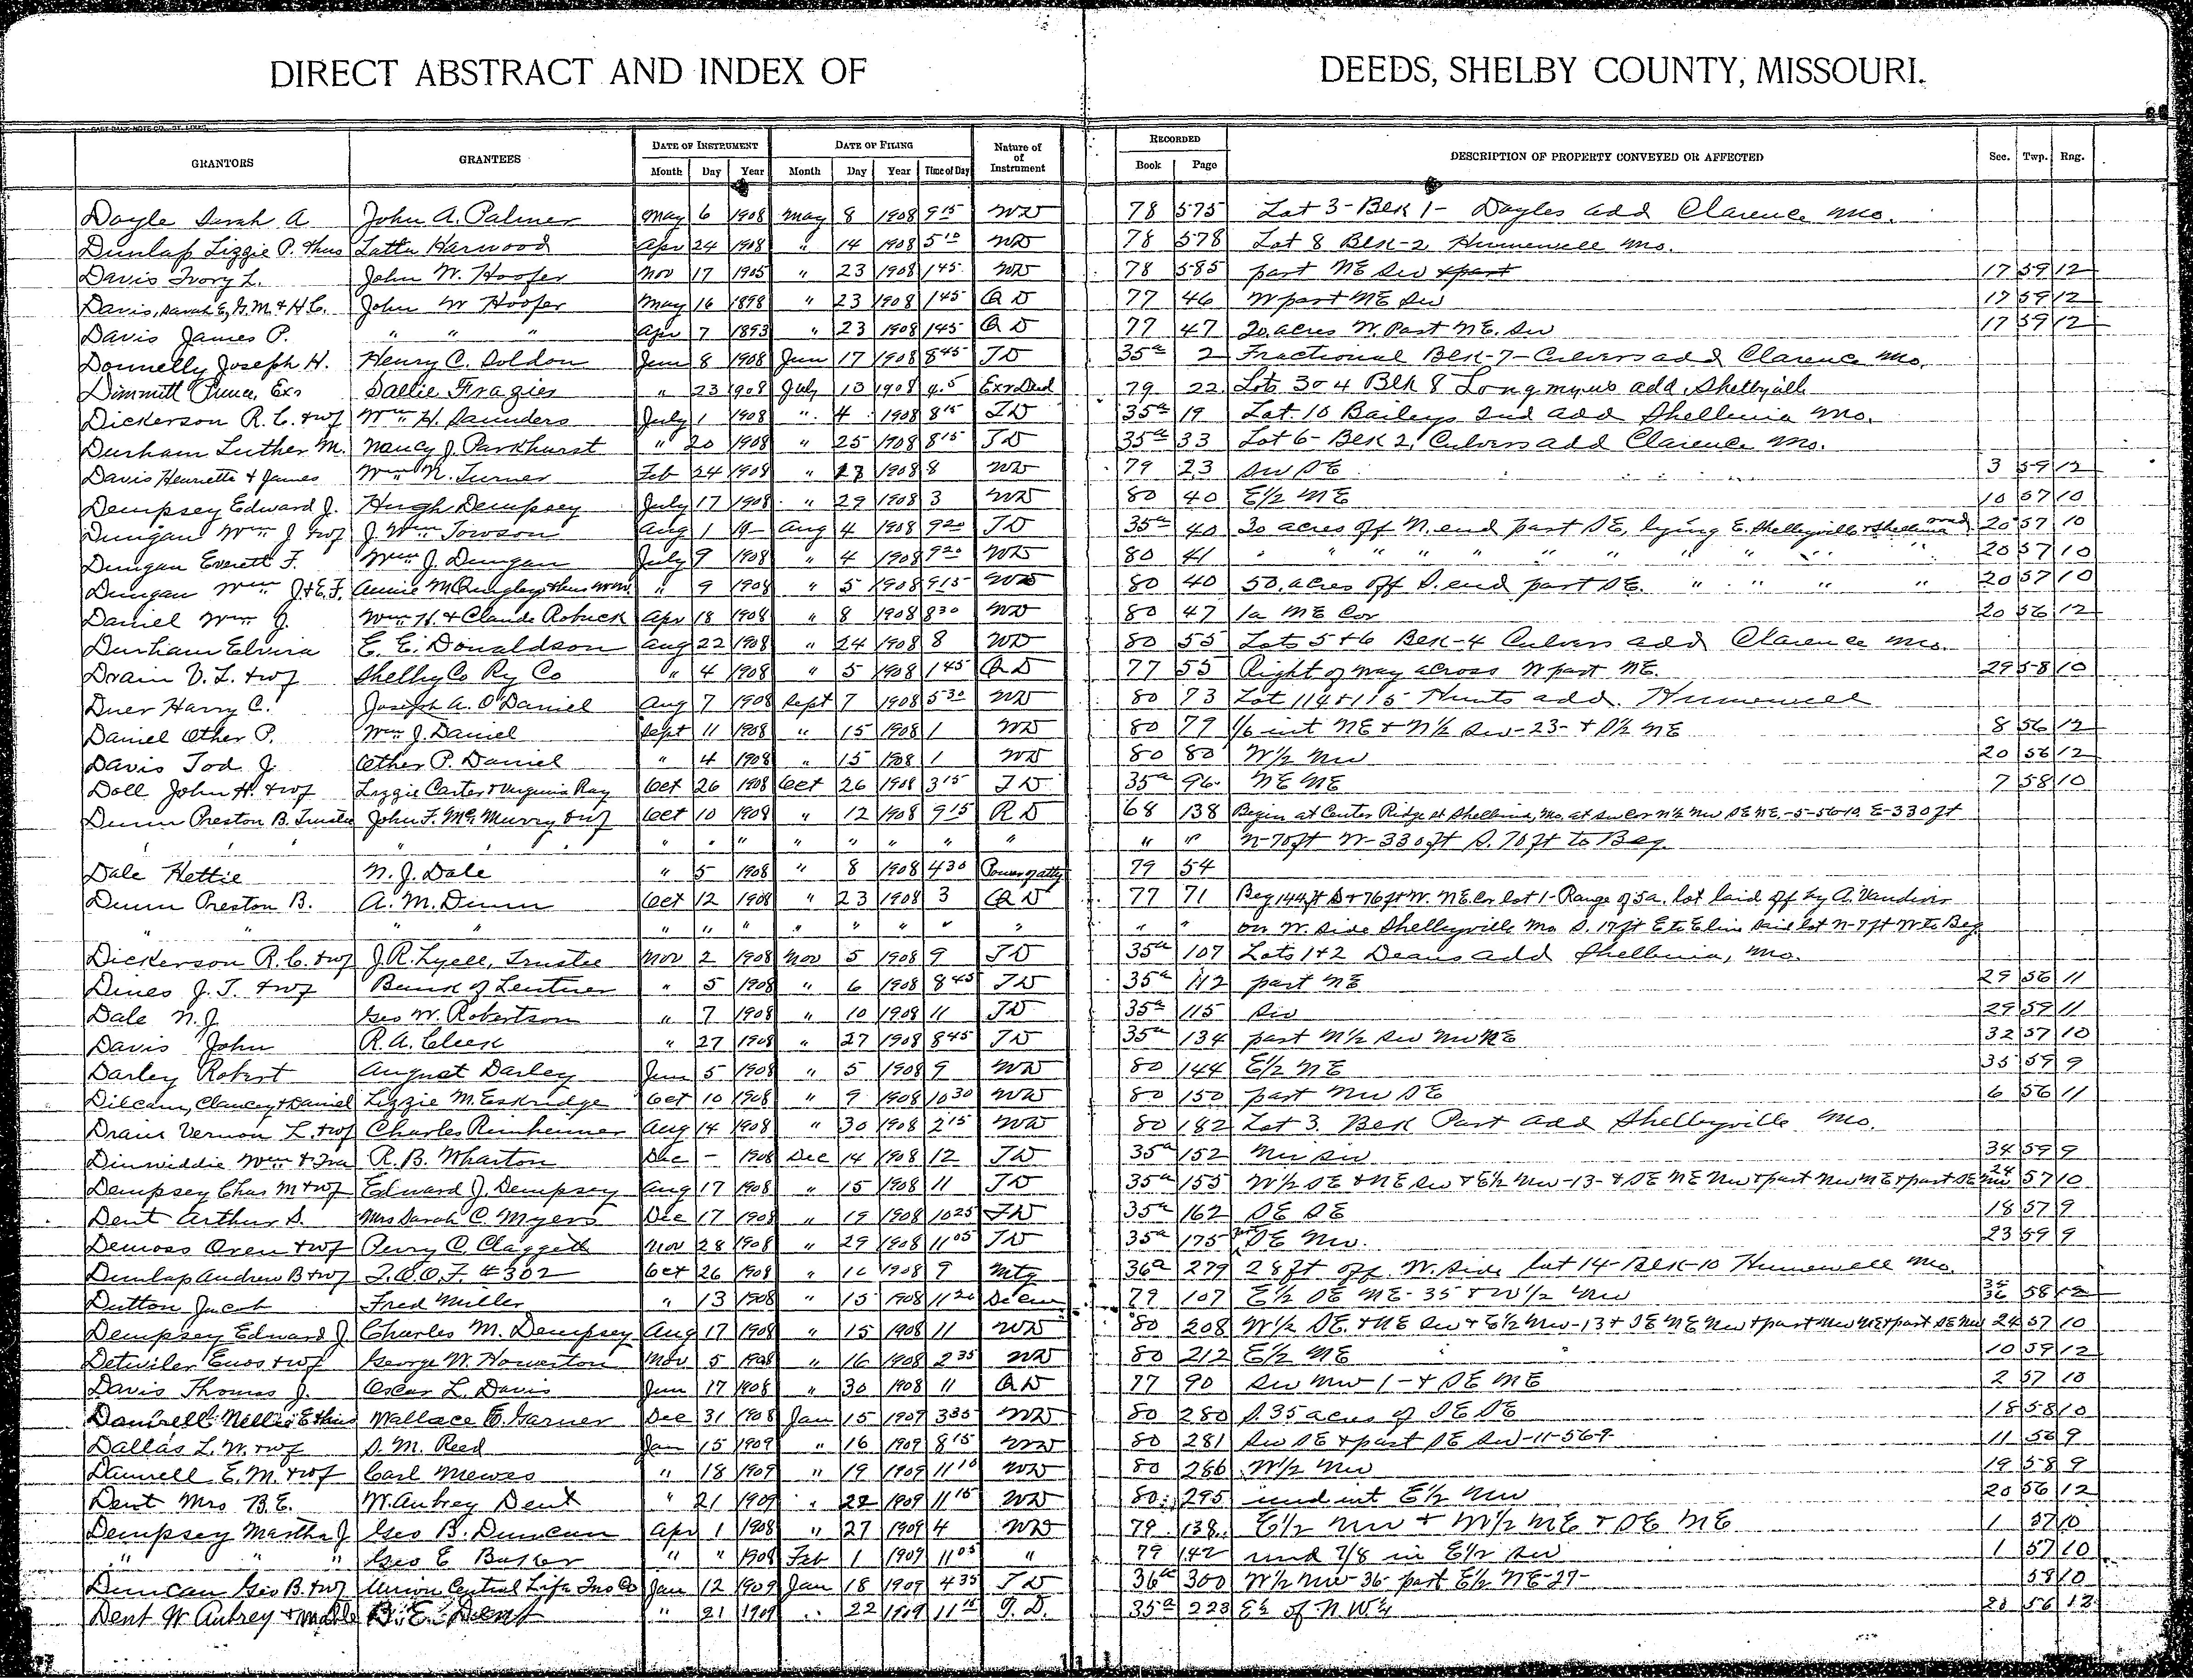 DIRECT ABSTRACT AND INDEX OF DEEDS, SHELBY COUNTY, MISSOURI.
GRANTORS GRANTEES DATE OF INSTRUMENT DATE OF FILING Nature of of Instrument RECORDED DESCRIPTION OF PROPERTY CONVEYED OR AFFECTED Sec. Twp. Rng.
Month Day Year Month Day Year Time of Day Book Page
Doyle Sarah A John A. Palmer May 6 1908 May 8 1908 9 15 WD 78 575 Lot 3-Blk 1- Doyles add Clarence Mo.
Dunlap Lizzie P. + hus Latta Harwood Apr 24 1908 " 14 1908 5 10 WD 78 578 Lot 8 Blk-2 Hunnewell Mo.
Davis Ivory L. John W. Hoofer Nov 17 1905 " 23 1908 1 45 WD 78 585 part NE SW 17 59 12
Davis, Sarah E, G.M. + H.C. John W Hoofer May 16 1898 " 23 1908 1 45 Q D 77 46 W part NE SW 17 59 12
Davis James P. " " " Apr 7 1893 " 23 1908 1 45 Q D 77 47 20 acres W. Part NE. SW 17 59 12
Donnelly Joseph H. Henry C. Soldon Jun 8 1908 Jun 17 1908 8 45 T D 35a 2 Fractional Blk-7-Culvers add Clarence Mo.
Dimmitt Prince, Exr Sallie Frazier " 23 1908 July 13 1908 4.5 Exr Deed 79 22 Lots 3 + 4 Blk 8 Longmyres add, Shelbyville
Dickerson R. C. + wf Wm H. Saunders July 1 1908 " 4 1908 8 15 T D 35a 19 Lot 10 Baileys 2nd add Shelbina Mo.
Durham Luther M. Nancy J. Parkhurst " 20 1908 " 25 1908 8 15 T D 35a 33 Lot 6- Blk 2, Culvers add Clarence Mo.
Davis Henrietta + James Wm N. Turner Feb 24 1908 " 23 1908 8 WD 79 23 SW SE 3 59 12
Dempsey Edward J. Hugh Dempsey July 17 1908 " 29 1908 3 WD 80 40 E½ NE 10 57 10
Dungan Wm J + wf J. Wm Towson Aug 1 19- Aug 4 1908 9 20 T D 35a 40 30 acres off N. end part SE, lying E. Shelbyville + Shelbina road 20 57 10
Dungan Everett F. Wm J. Dungan July 9 1908 " 4 1908 9 20 WD 80 41 " " " " " " " " " " " 20 57 10
Dungan Wm J + E.F. Annie M 9 1908 " 5 1908 9 15 WD 80 40 50 acres off S. end part SE. " " " " 20 57 10
Daniel Wm J. Wm H. + Claude Robuck Apr 18 1908 " 8 1908 8 30 WD 80 47 1a NE Cor 20 56 12
Durham Elvira E. E. Donaldson Aug 22 1908 " 24 1908 8 WD 80 55 Lots 5 + 6 Blk-4 Culvers add Clarence Mo.
Drain V. L. + wf Shelby Co Ry Co " 4 1908 " 5 1908 1 45 Q D 77 55 Right of way across N part NE. 29 58 10
Duer Harry C. Joseph A. O'Daniel Aug 7 1908 Sept 7 1908 5 30 WD 80 73 Lot 114 + 115 Hunts add. Hunnewell
Daniel Other P. Wm J. Daniel Sept 11 1908 " 15 1908 1 WD 80 79 1/6 int NE + N½ SW-23- + S½ NE 8 56 12
Davis Tod J. Other P. Daniel " 4 1908 " 15 1908 1 WD 80 80 W½ NW 20 56 12
Doll John H. + wf Lizzie Carter + Virginia Ray Oct 26 1908 Oct 26 1908 3 15 T D 35a 96 NE NE 7 58 10
Dunn Preston B. Trustee John F. McMurry + wf Oct 10 1908 " 12 1908 9 15 R D 68 138 Begin at Center Ridge st Shelbina, Mo. at SW cor N½ NW SE NE,-5-56-10, E-330 ft
" " " " " " " " " " " " " " " N-70ft W-330ft S. 70ft to Beg.
Dale Hettie N. J. Dale " 5 1908 " 8 1908 4 30 Power of atty 79 54
Dunn Preston B. A. M. Dunn Oct 12 1908 " 23 1908 3 Q D 77 71 Beg 144ft S + 76ft W. NE Cor lot 1-Range of 5a. lot laid off by A. Vandiver
" " " " " " " " " " " " " on W. side Shelbyville Mo S. 17ft E to E line said lot N-7ft W to Beg.
Dickerson R. C. + wf J. R. Lyell, Trustee Nov 2 1908 Nov 5 1908 9 T D 35a 107 Lots 1 + 2 Deans add Shelbina, Mo.
Dines J. T. + wf Bank of Lentner " 5 1908 " 6 1908 8 45 T D 35a 112 part NE 29 56 11
Dale N. J Geo W. Robertson " 7 1908 " 10 1908 11 T D 35a 115 SW 29 59 11
Davis John R. A. Cleek " 27 1908 " 27 1908 8 45 T D 35a 134 part N½ SW NW NE 32 57 10
Darley Robert August Darley Jun 5 1908 " 5 1908 9 WD 80 144 E½ NE 35 59 9
Dilcam, Clancey + Daniel Lizzie M. Eskridge Oct 10 1908 " 9 1908 10 30 WD 80 150 part NW SE 6 56 11
Drain Vernon L. + wf Charles Rimheimer Aug 14 1908 " 30 1908 2 15 WD 80 182 Lot 3. Blk Part add Shelbyville Mo.
Dinwiddie Wm + Ira R. B. Wharton Dec - 1908 Dec 14 1908 12 T D 35a 152 NW SW 34 59 9
Dempsey Chas M + wf Edward J. Dempsey Aug 17 1908 " 15 1908 11 T D 35a 155 W½ SE + NE SW + E½ NW-13- + SE NE NW + part NW NE + part SE NW 24 57 10
Dent Arthur S. Mrs Sarah C. Myers Dec 17 1908 " 19 1908 10 25 T D 35a 162 SE SE 18 57 9
Demoss Oren + wf Perry C. Claggett Nov 28 1908 " 29 1908 11 05 T D 35a 175 part SE NW. 23 59 9
Dunlap Andrew B + wf I.O.O.F. #302 Oct 26 1908 " 16 1908 9 Mtg 36a 279 28 ft off W. side lot 14-Blk-10 Hunnewell Mo.
Dutton Jacob Fred Miller " 13 1908 " 15 1908 11 20 79 107 E½ SE NE-35 + W½ NW 35 36 58 12
Dempsey Edward J. Charles M. Dempsey Aug 17 1908 " 15 1908 11 WD 80 208 W½ SE. + NE SW + E½ NW-13 + SE NE NW + part NW NE + part SE NW 24 57 10
Detwiler Enos + wf George W. Howerton Nov 5 1908 " 16 1908 2 35 WD 80 212 E½ NE 10 59 12
Davis Thomas J. Oscar L. Davis Jun 17 1908 " 30 1908 11 Q D 77 90 SW NW 1- + SE NE 2 57 10
Nellie E + hus Wallace E. Garner Dec 31 1908 Jan 15 1909 3 35 WD 80 280 S. 35 acres of SE SE 18 58 10
Dallas L. W. + wf S. M. Reed Jan 15 1909 " 16 1909 8 15 WD 80 281 SW SE + part SE SW-11-56-9 11 56 9
E. M. + wf Carl Mewes " 18 1909 " 19 1909 11 10 WD 80 286 W½ NW 19 58 9
Dent Mrs B. E. W. Aubrey Dent " 21 1909 " 22 1909 11 15 WD 80 295 und int E½ NW 20 56 12
Dempsey Martha J Geo B. Duncan Apr 1 1908 " 27 1909 4 WD 79 138 E½ NW + W½ NE + SE NE 1 57 10
" " " Geo E " " 1908 Feb 1 1909 11 05 " 79 142 und 7/8 in E½ SW 1 57 10
Duncan Geo B. + wf Union Central Life Ins Co Jan 12 1909 Jan 18 1909 4 35 T D 36a 300 W½ NW-36- part E½ NE-27- 58 10
Dent W Aubrey + B. E. Dent " 21 1909 " 22 1909 11 15 T. D. 35a 223 E½ of N.W¼ 20 56 12